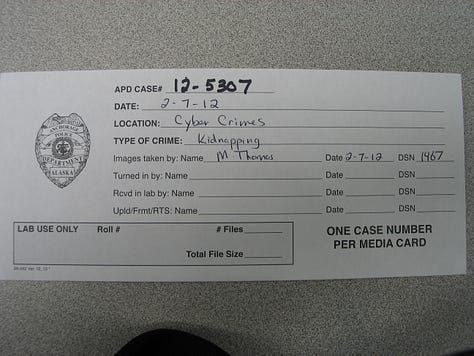 APD CASE# 12-5307
DATE: 2-7-12
LOCATION: Cyber Crimes
TYPE OF CRIME: Kidnapping
Images taken by: Name M Thomas Date 2-7-12 DSN 1467
Turned in by: Name Date DSN
Rcvd in lab by: Name Date DSN
Upld/Frmt/RTS: Name Date DSN
ANCHORAGE
POLICE
DEPARTMENT
ALASKA
LAB USE ONLY Roll # # Files
Total File Size
ONE CASE NUMBER
PER MEDIA CARD